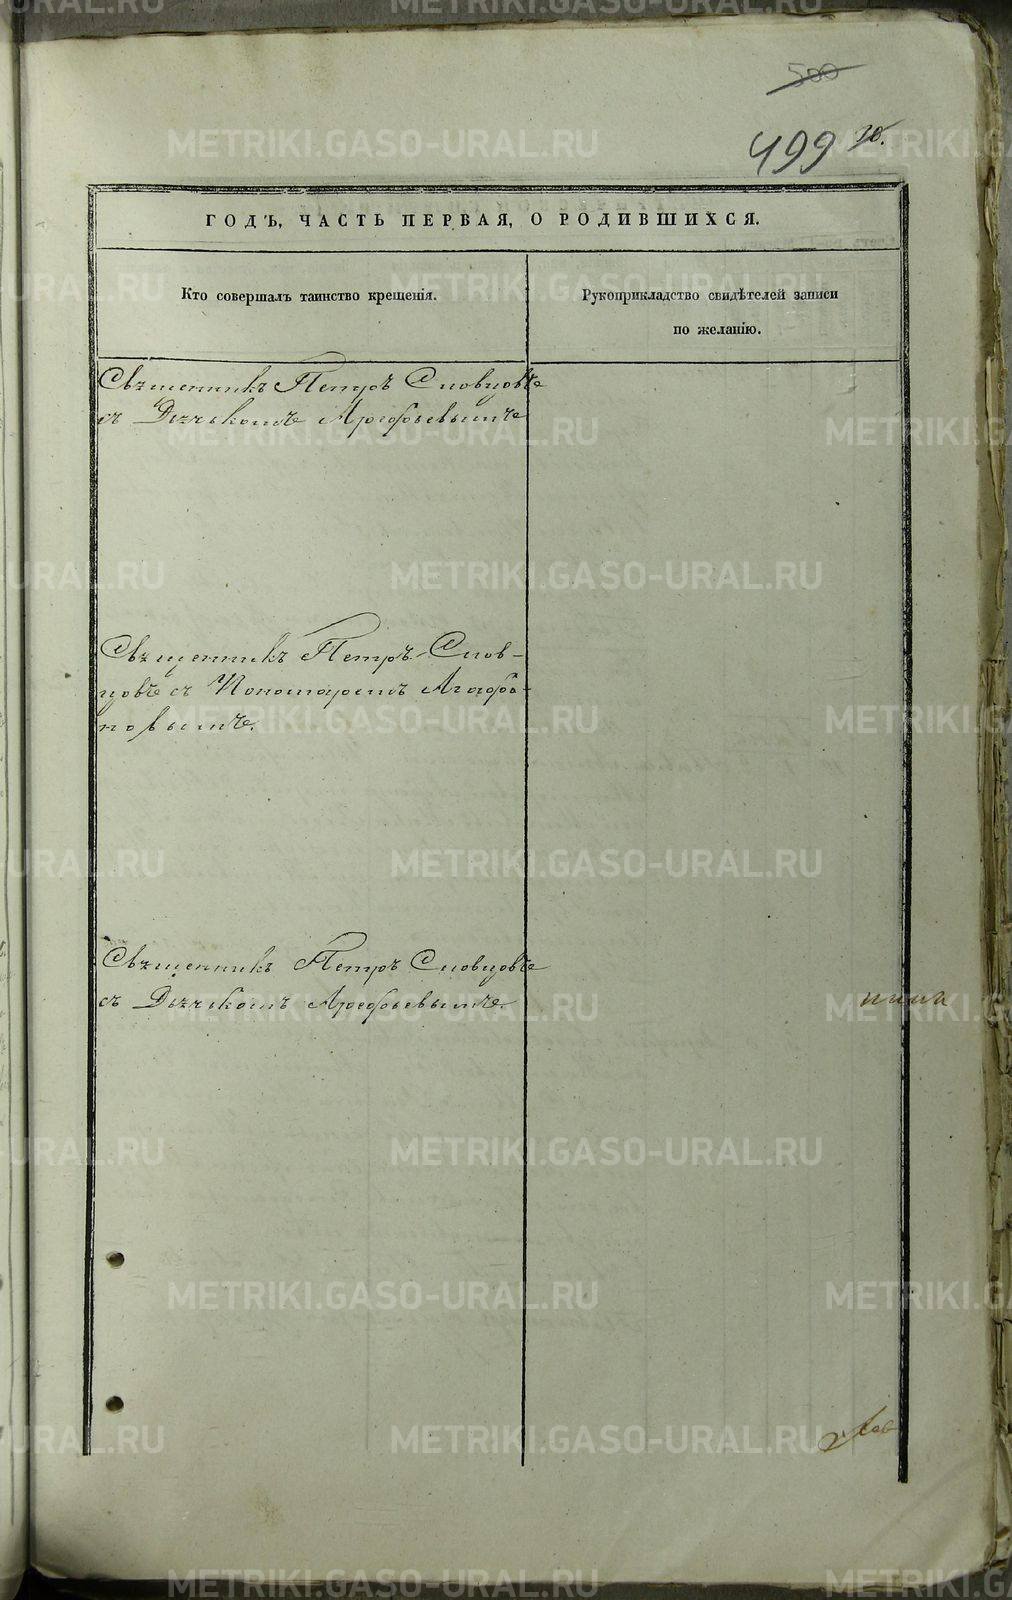 500
499
10.
ГОДЪ, ЧАСТЬ ПЕРВАЯ, О РОДИВШИХСЯ.
Кто совершалъ таинство крещенія.
Рукоприкладство свидѣтелей записи
по желанію.
Священникъ Петръ Словцовъ
съ Дьячькомъ Арефьевымъ
Священникъ Петръ Слов-
цовъ съ Пономаремъ Агафо-
новымъ.
Священникъ Петръ Словцовъ
съ Дьячькомъ Арефьевымъ.
METRIKI.GASO-URAL.RU